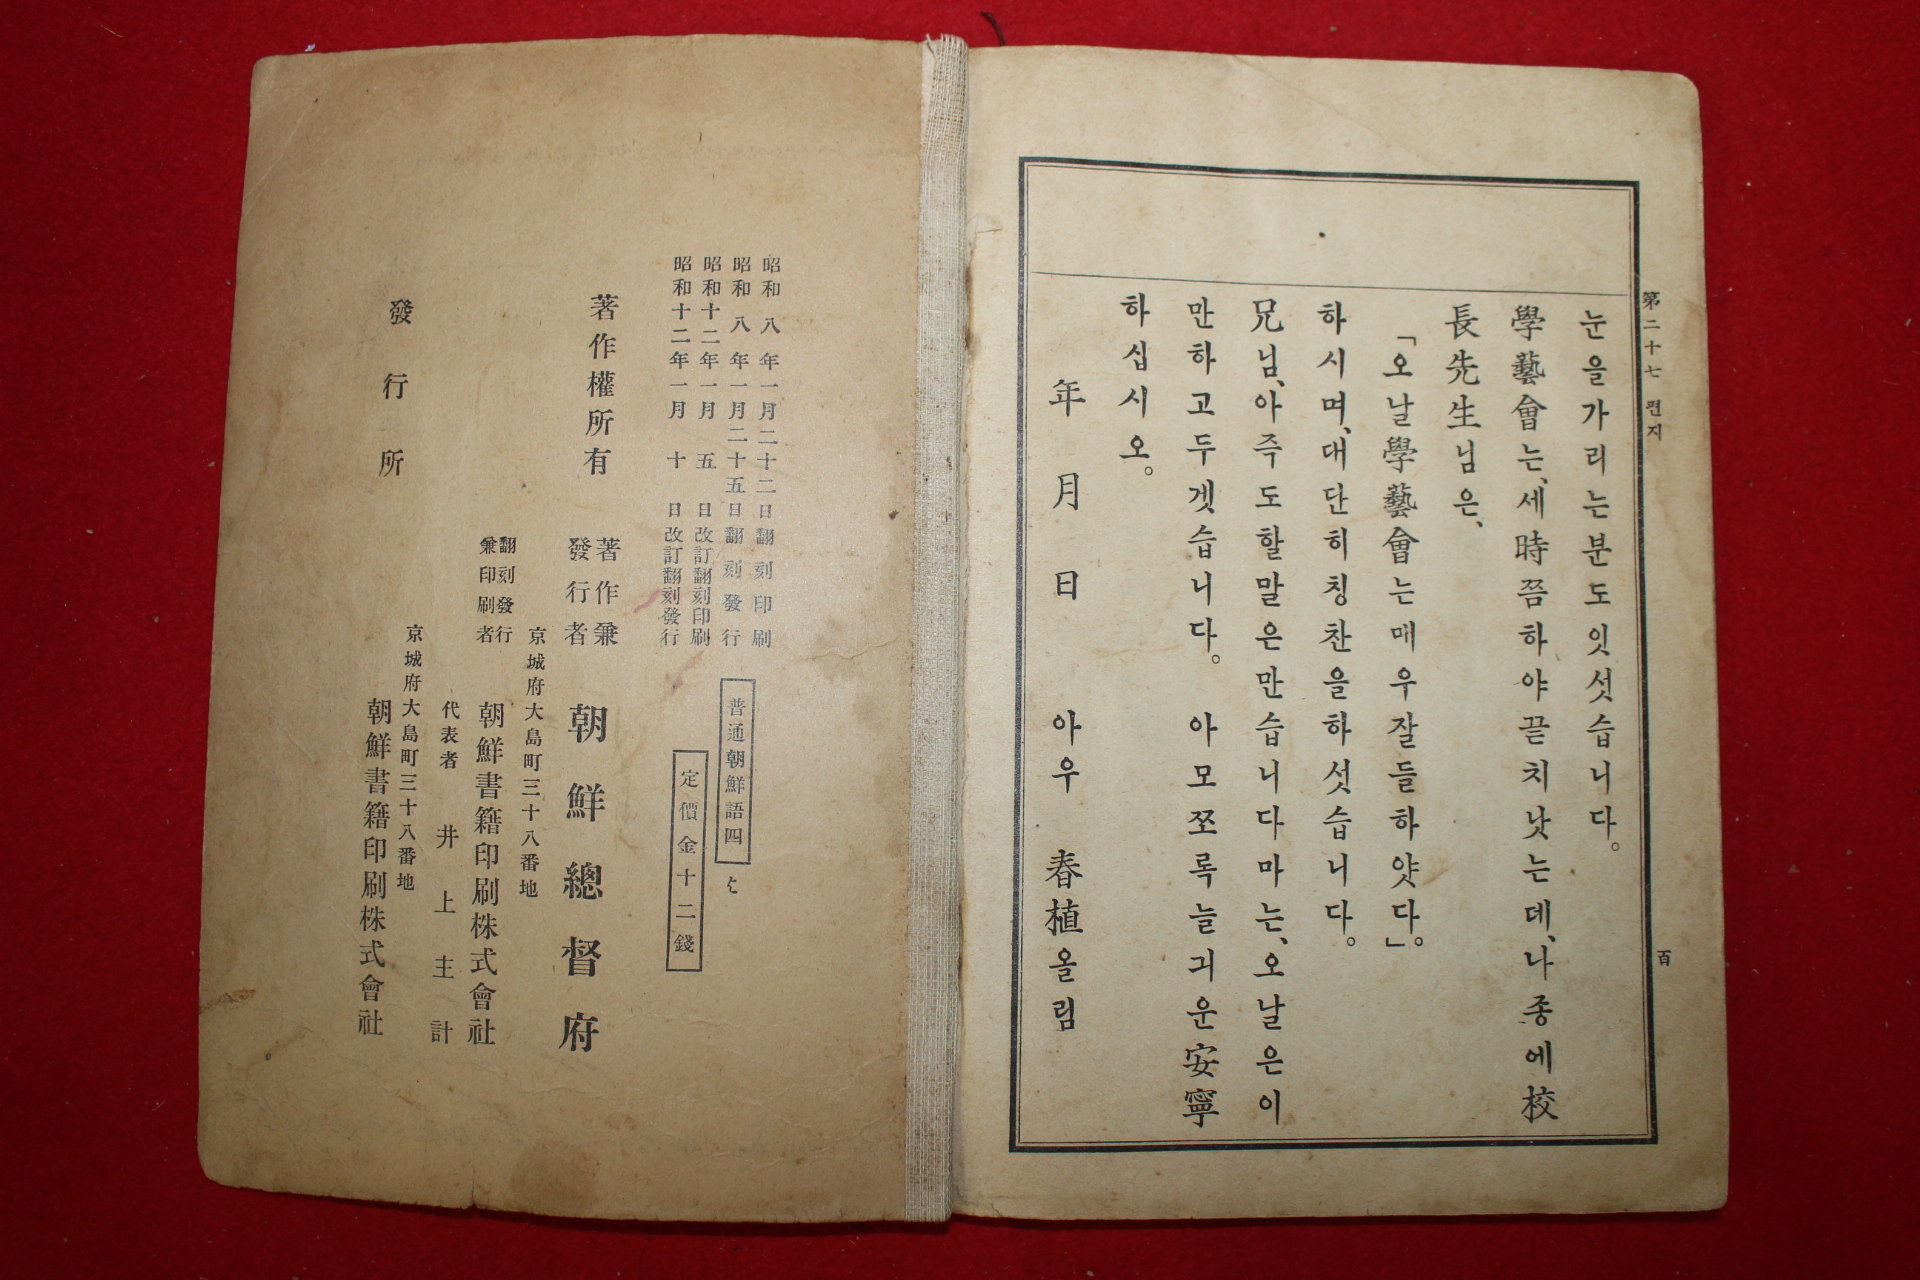 第二十七 편지
百
눈을가리는분도잇섯습니다。
學藝會는、세時쯤하야끝치낫는데、나종에校
長先生님은、
「오날學藝會는매우잘들하얏다。」
하시며、대단히칭찬을하섯습니다。
兄님、아즉도할말은만습니다마는、오날은이
만하고두겟습니다。 아모쪼록늘긔운安寧
하십시오。
年 月 日 아우 春植올림
昭和八年一月二十二日翻刻印刷
昭和八年一月二十五日翻刻發行
昭和十二年一月五日改訂翻刻印刷
昭和十二年一月十日改訂翻刻發行
普通朝鮮語四
と
定價金十二錢
著作權所有
著作兼
發行者
朝鮮總督府
京城府大島町三十八番地
翻刻發行
兼印刷者
朝鮮書籍印刷株式會社
代表者 井上主計
京城府大島町三十八番地
發行所
朝鮮書籍印刷株式會社